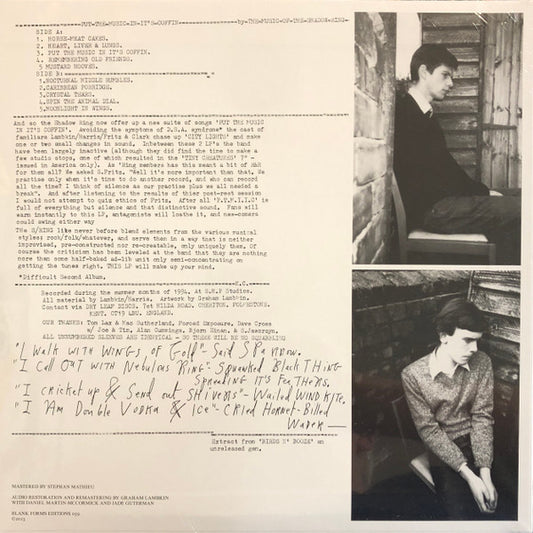 PUT-THE-MUSIC-IN-IT'S-COFFIN by-THE-MUSIC-OF-THE-SHADOW-RING
SIDE A:
1. HORSE-MEAT CAKES.
2. HEART, LIVER & LUNGS.
3. PUT THE MUSIC IN IT'S COFFIN.
4. REMEMBERING OLD FRIENDS.
5 MUSTARD HOOVES.
SIDE B:
1.NOCTURNAL MIDDLE RUMBLES.
2.CARIBBEAN PORRIDGE.
3.CRYSTAL TEARS.
4.SPIN THE ANIMAL DIAL.
5.MOONLIGHT IN WINGS.
And so the Shadow Ring now offer up a new suite of songs 'PUT THE MUSIC
IN IT'S COFFIN'. Avoiding the symptoms of D.S.A. syndrome* the cast of
familiars Lambkin/Harris/Fritz & Clark chase up 'CITY LIGHTS' and make
one or two small changes in sound. Inbetween these 2 LP's the band
have been largely inactive (although they did find the time to make a
few studio stops, one of which resulted in the 'TINY CREATURES' 7" -
issued in America only). As 'Ring members has this meant a bit of R&R
for them all? We asked S.Fritz. "Well it's more important than that. We
practise only when it's time to do another record, and who can record
all the time? I think of silence as our practise plus we all needed a
break". And after listening to the results of thier post-rest session
I would not attempt to quiz ethics of Fritz. After all 'P.T.M.I.I.C' is
full of everything but silence and that distinctive sound. Fans will
warm instantly to this LP, antagonists will loathe it, and new-comers
could swing either way
The S/RING like never before blend elements from the various musical
styles: rock/folk/whatever, and serve them in a way that is neither
improvised, pre-constructed nor re-creatable, only uniquely them. Of
course the criticism has been leveled at the band that they are nothing
more than some half-baked ad-lib unit only semi-concentrating on
getting the tunes right. THIS LP will make up your mind.
*Difficult Second Album.
Recorded during the summer months of 1994. At S.H.P Studios.
All material by Lambkin/Harris. Artwork by Graham Lambkin.
Contact via DRY LEAF DISCS. CHERITON. FOLKESTONE.
KENT. CT19 ENGLAND.
OUR THANKS: Tom Lax & Mac Sutherland, Forced Exposure, Dave Cross
w/ Joe & Tim, Alan Cummings, Bjorn
ALL UNNUMBERED SLEEVES ARE IDENTICAL - SO THERE WILL BE NO SQUABBLING
"I WALK WITH WINGS OF GOLD"- SAID SPARROW.
"I CALL OUT WITH NEBULOUS RING"- SQUAWKED BLACK THING
SPREADING IT'S FEATHERS.
"I CRICKET UP & SEND OUT SHIVERS"- WAILED WIND KITE.
"I AM DOUBLE VODKA & ICE"- CRIED HORNET-BILLED
WADER
Extract from 'BIRDS N' BOOZE' an
unreleased gem.
MASTERED BY STEPHAN MATHIEU
AUDIO RESTORATION AND REMASTERING BY GRAHAM LAMBKIN
WITH DANIEL MARTIN-MCCORMICK AND JADE GUTERMAN
BLANK FORMS EDITIONS
©2023